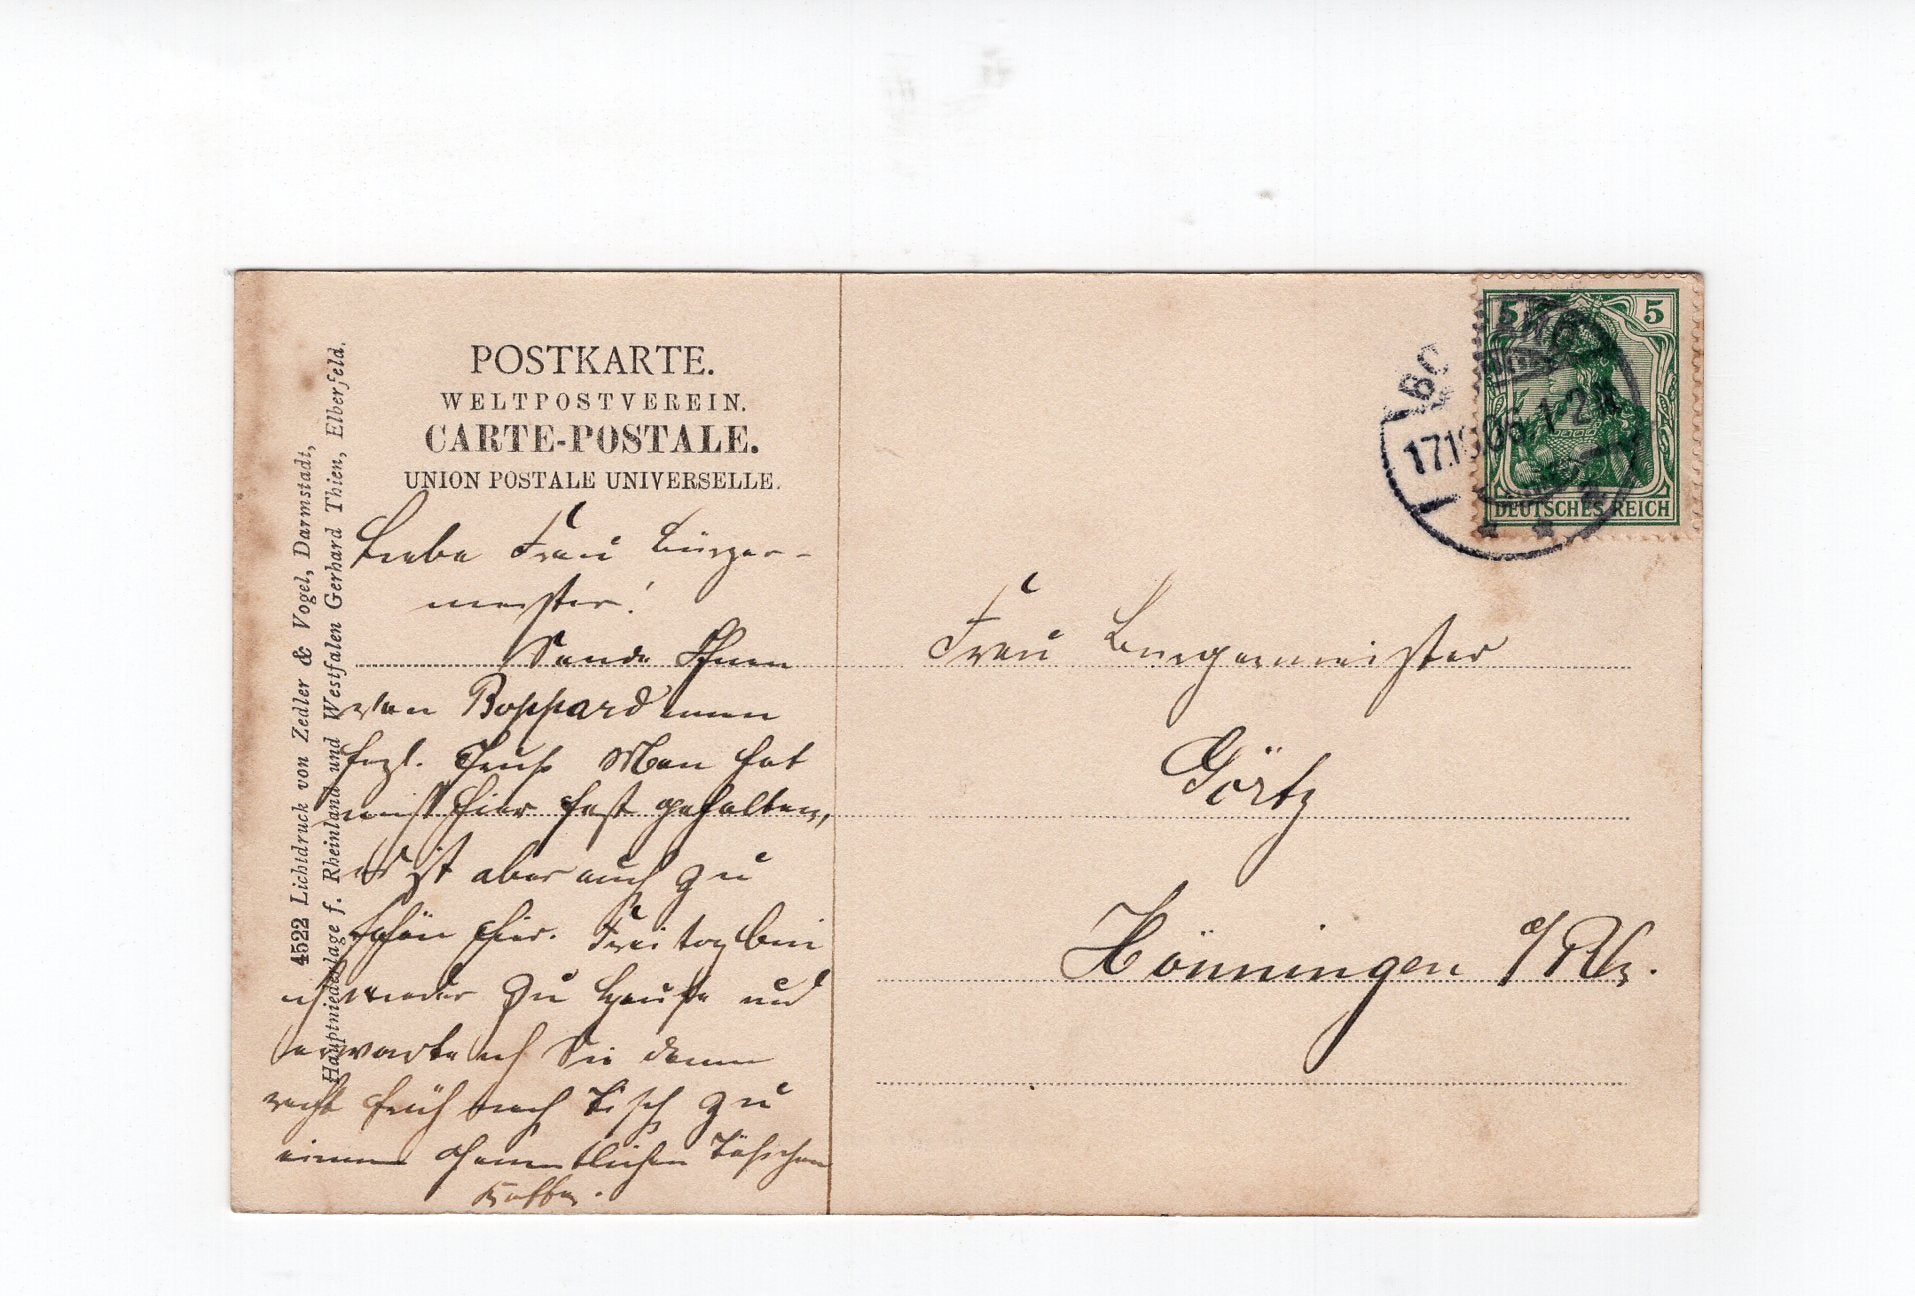 POSTKARTE.
WELTPOSTVEREIN.
CARTE-POSTALE.
UNION POSTALE UNIVERSELLE.
4522 Lichtdruck von Zedler & Vogel, Darmstadt,
Hauptniederlage f. Rheinland und Westfalen Gerhard Thien, Elberfeld.
Liebe Frau Bürger-
meister!
Sende Ihnen
von Boppard einen
hrzl. Gruß. Man hat
mich hier fest gehalten,
es ist aber auch zu
schön hier. Freitag bin
ich wieder zu Hause und
erwarte ich Sie dann
recht früh nach Tisch zu
einem Täßchen
Kaffee.
5 5
DEUTSCHES REICH
BO
17.10.06.1-2N
Frau Burgermeister
Görtz
Hönningen a/Rh.